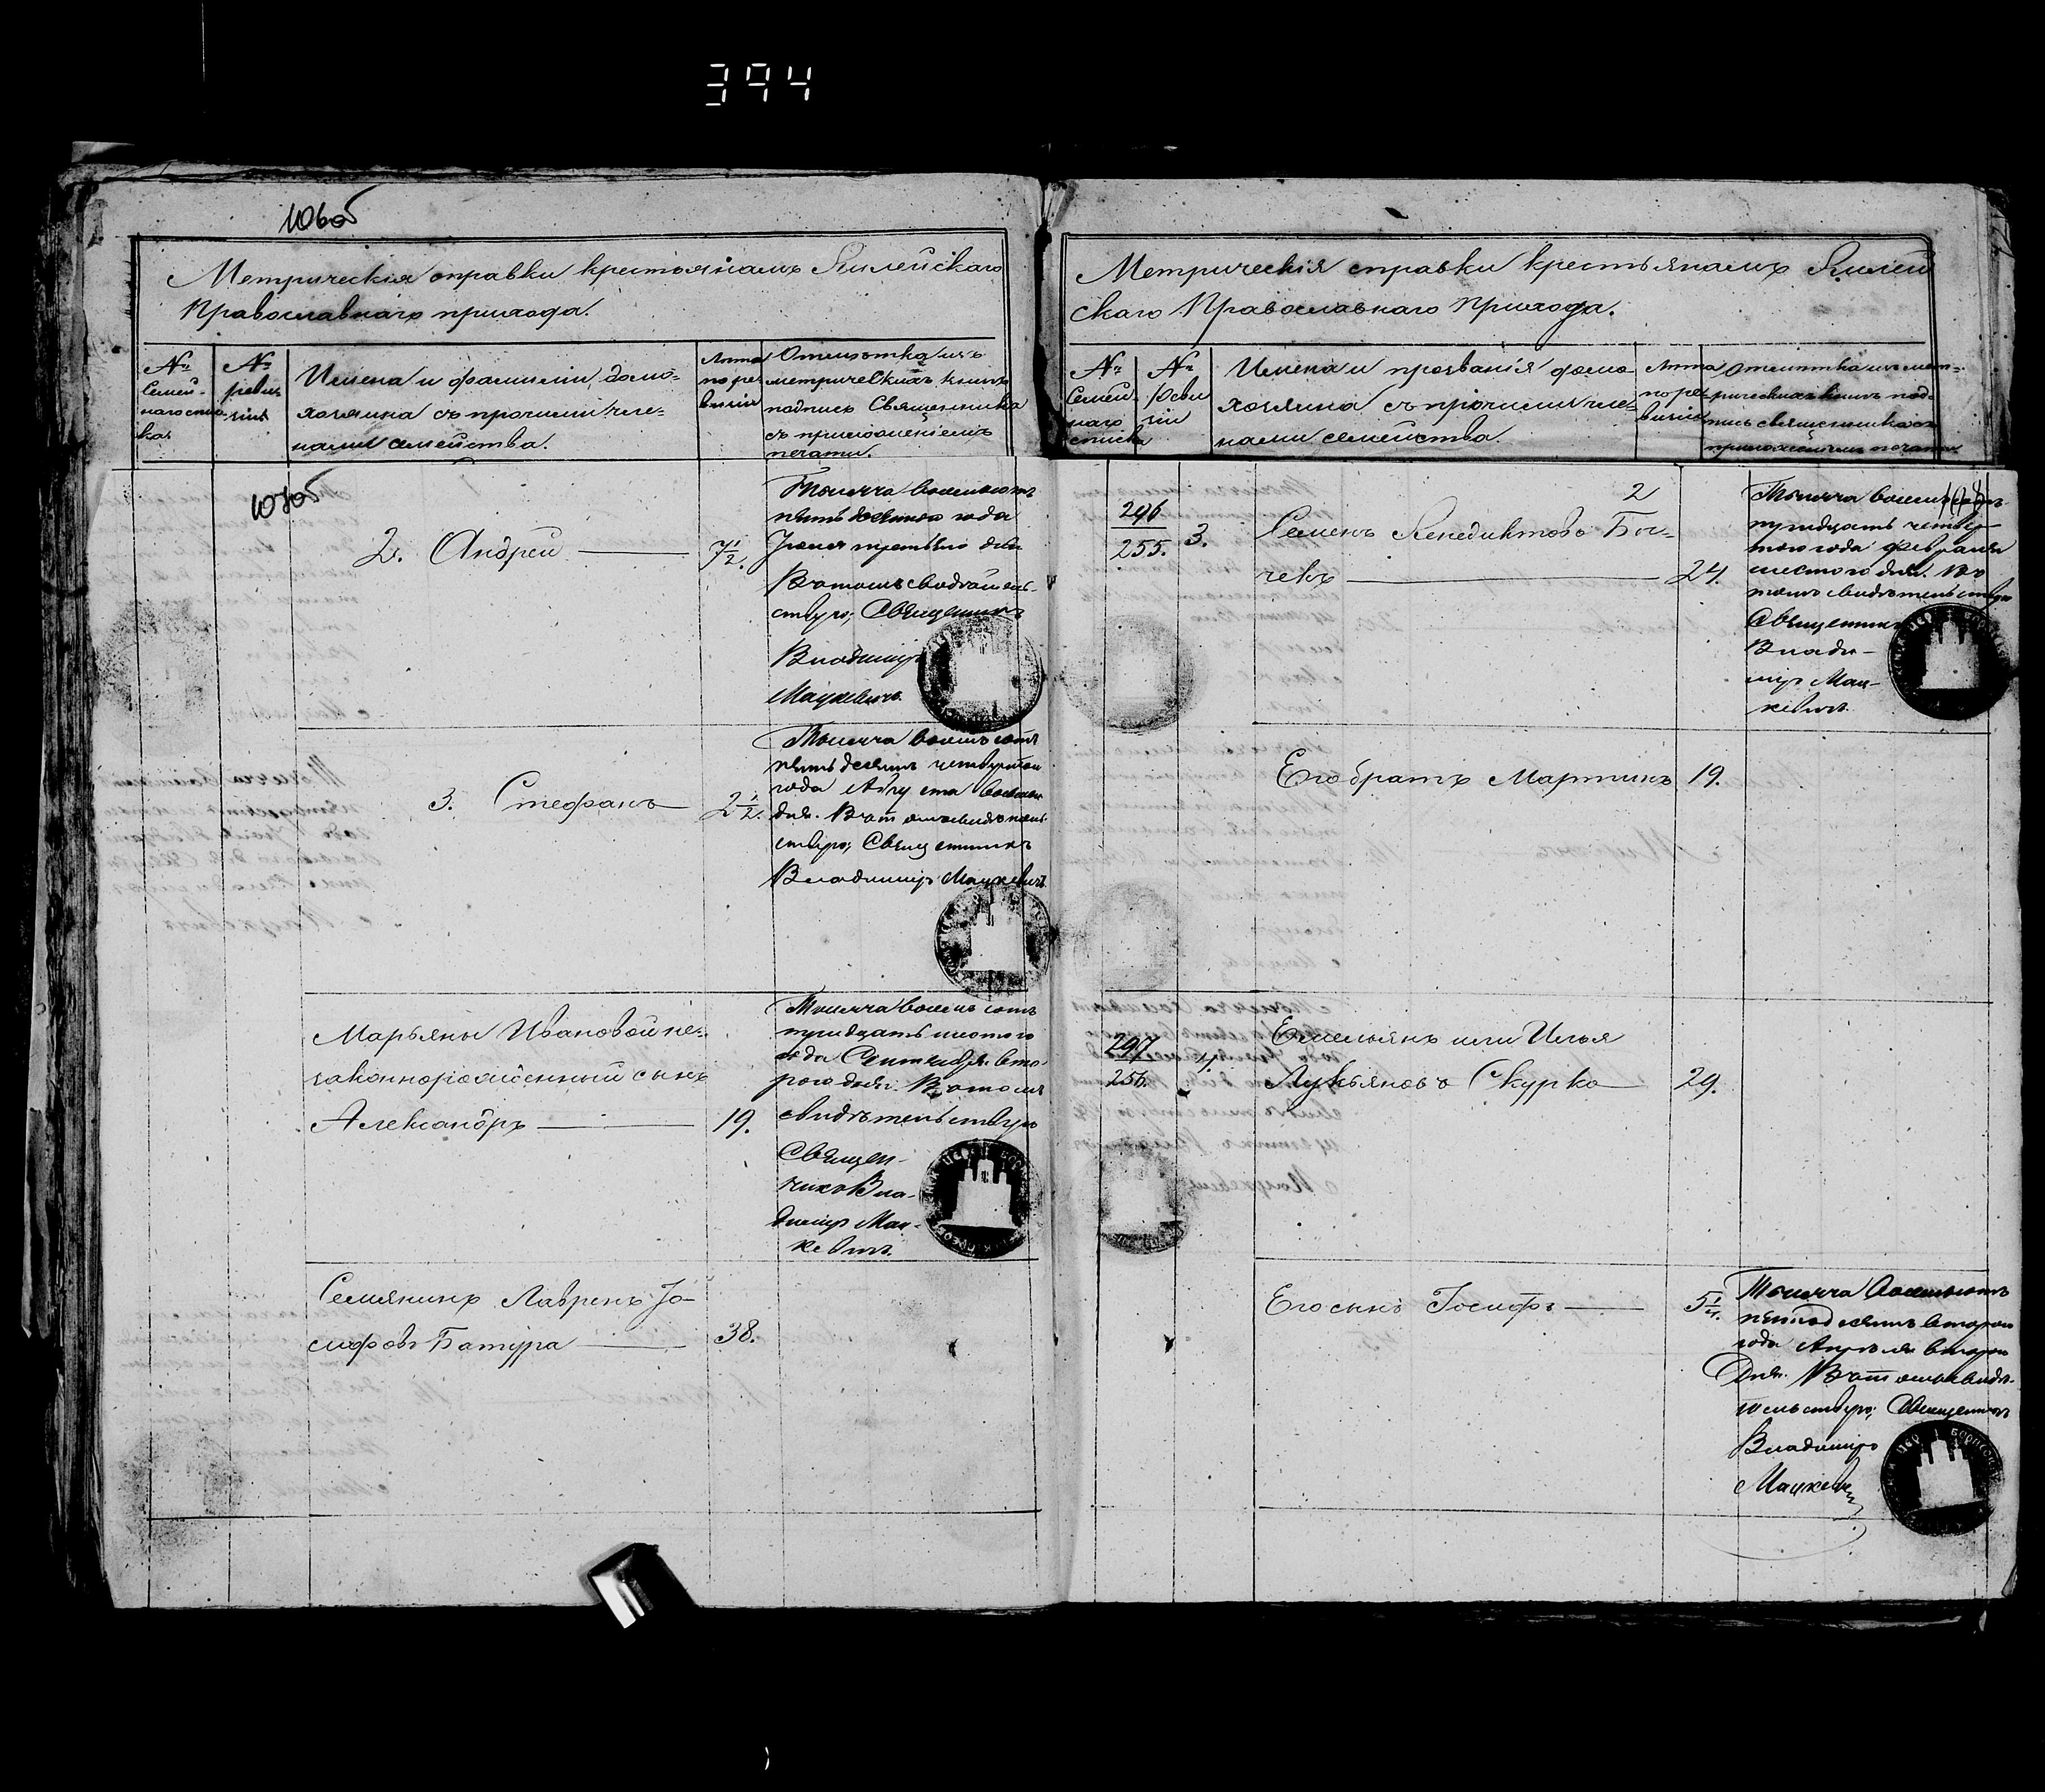 394
106об
Метрическія справки крестьянамъ Килейскаго
Православнаго прихода.
№
Семей-
наго спис-
ка
№
реви-
зіи
Имена и фамиліи домо-
хозяина съ прочими чле-
нами семейства.
Лета
по ре-
визіи
Отмѣтка изъ
метрическихъ книгъ
подпись Священника
съ приложеніемъ
печати.
107об
2. Андрей 7½.
Тысяча восемьсотъ
пятьдесятаго года
Іюня третьяго дня
Въ томъ свидѣтель-
ствую; Священникъ
Владиміръ
Мацкевичъ.
3. Стефанъ 2½.
Тысяча восемьсотъ
пятьдесятъ четвертаго
года Августа
дня. Въ томъ свидѣтель-
ствую; Священникъ
Владиміръ Мацкевичъ
Марьяны Ивановой не-
законнорожденный сынъ
Александръ 19.
Тысяча восемьсотъ
тридцать шестого
года Сентября вто-
рого дня. Въ томъ
свидѣтельствую
Священ-
никъ Вла-
диміръ Мац-
кевичъ.
Семянинъ Лавренъ Іо-
сифовъ Батура 38.
Метрическія справки крестьянамъ Килей
скаго Православнаго Прихода.
№
Семей-
наго
списка
№
Реви
зіи
Имена и прозванія домо-
хозяина съ прочими чле-
нами семейства.
Лета
по ре-
визіи
Отмѣтка изъ мет-
рическихъ книгъ под-
пись священника съ
приложеніемъ печати
2
108
296
255. 3. Семенъ Бенедиктовъ Бы-
чекъ 24.
Тысяча восемьсотъ
тридцать четвер-
того года февраля
шестого дня. Въ
томъ свидѣтельствую
Священникъ
Влади-
міръ Мац-
кевичъ.
Его братъ Мартинъ 19.
297
256. 4. Емельянъ или Илья
Лукьяновъ Скурко 29.
Его сынъ Іосифъ 5¼.
Тысяча восемьсотъ
пятьдесятъ второго
года Апрѣля второго
Дня. Въ томъ свидѣ-
тельствую; Священникъ
Владиміръ
Мацкевичъ